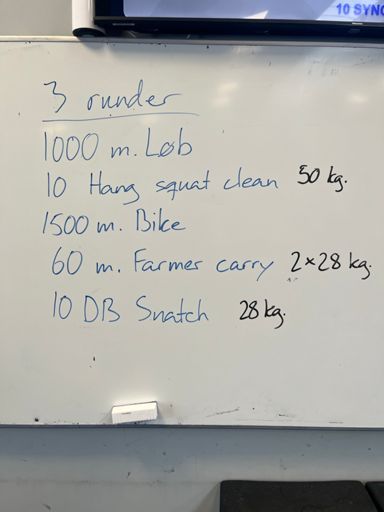 10 SYNC
3 runder
1000 m. Løb
10 Hang squat clean 50 kg.
1500 m. Bike
60 m. Farmer carry 2×28 kg.
10 DB Snatch 28 kg.